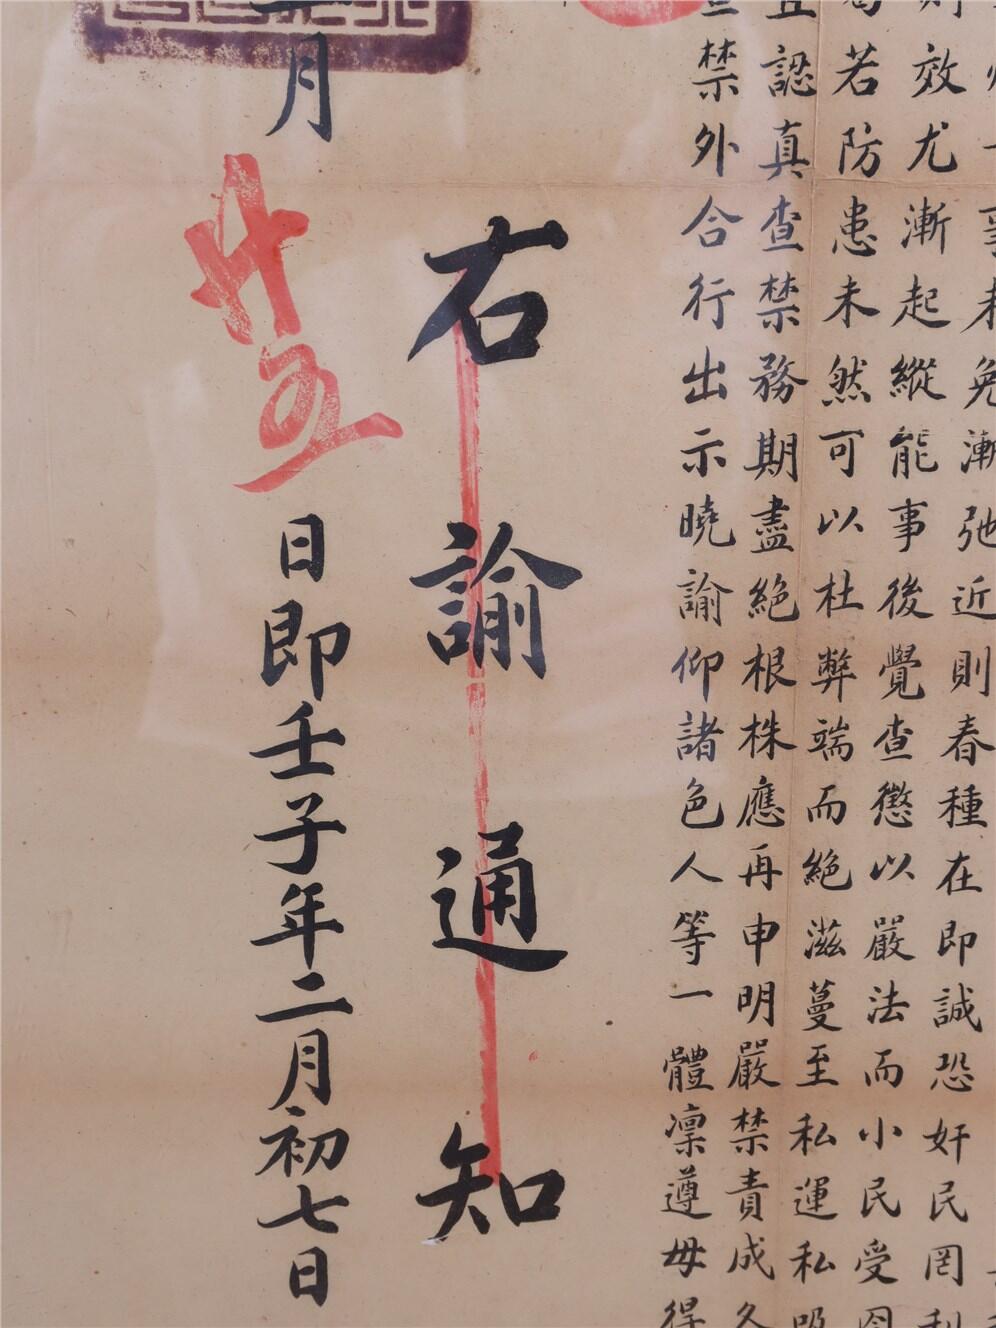 事未免漸弛近則春種在即誠恐奸民罔利
則效尤漸起縱能事後覺查懲以嚴法而小民受
若防患未然可以杜弊端而絕滋蔓至私運私吸
且認真查禁務期盡絕根株應再申明嚴禁責成久
禁外合行出示曉諭仰諸色人等一體凜遵毋得
右諭通知
月廿五日即壬子年二月初七日